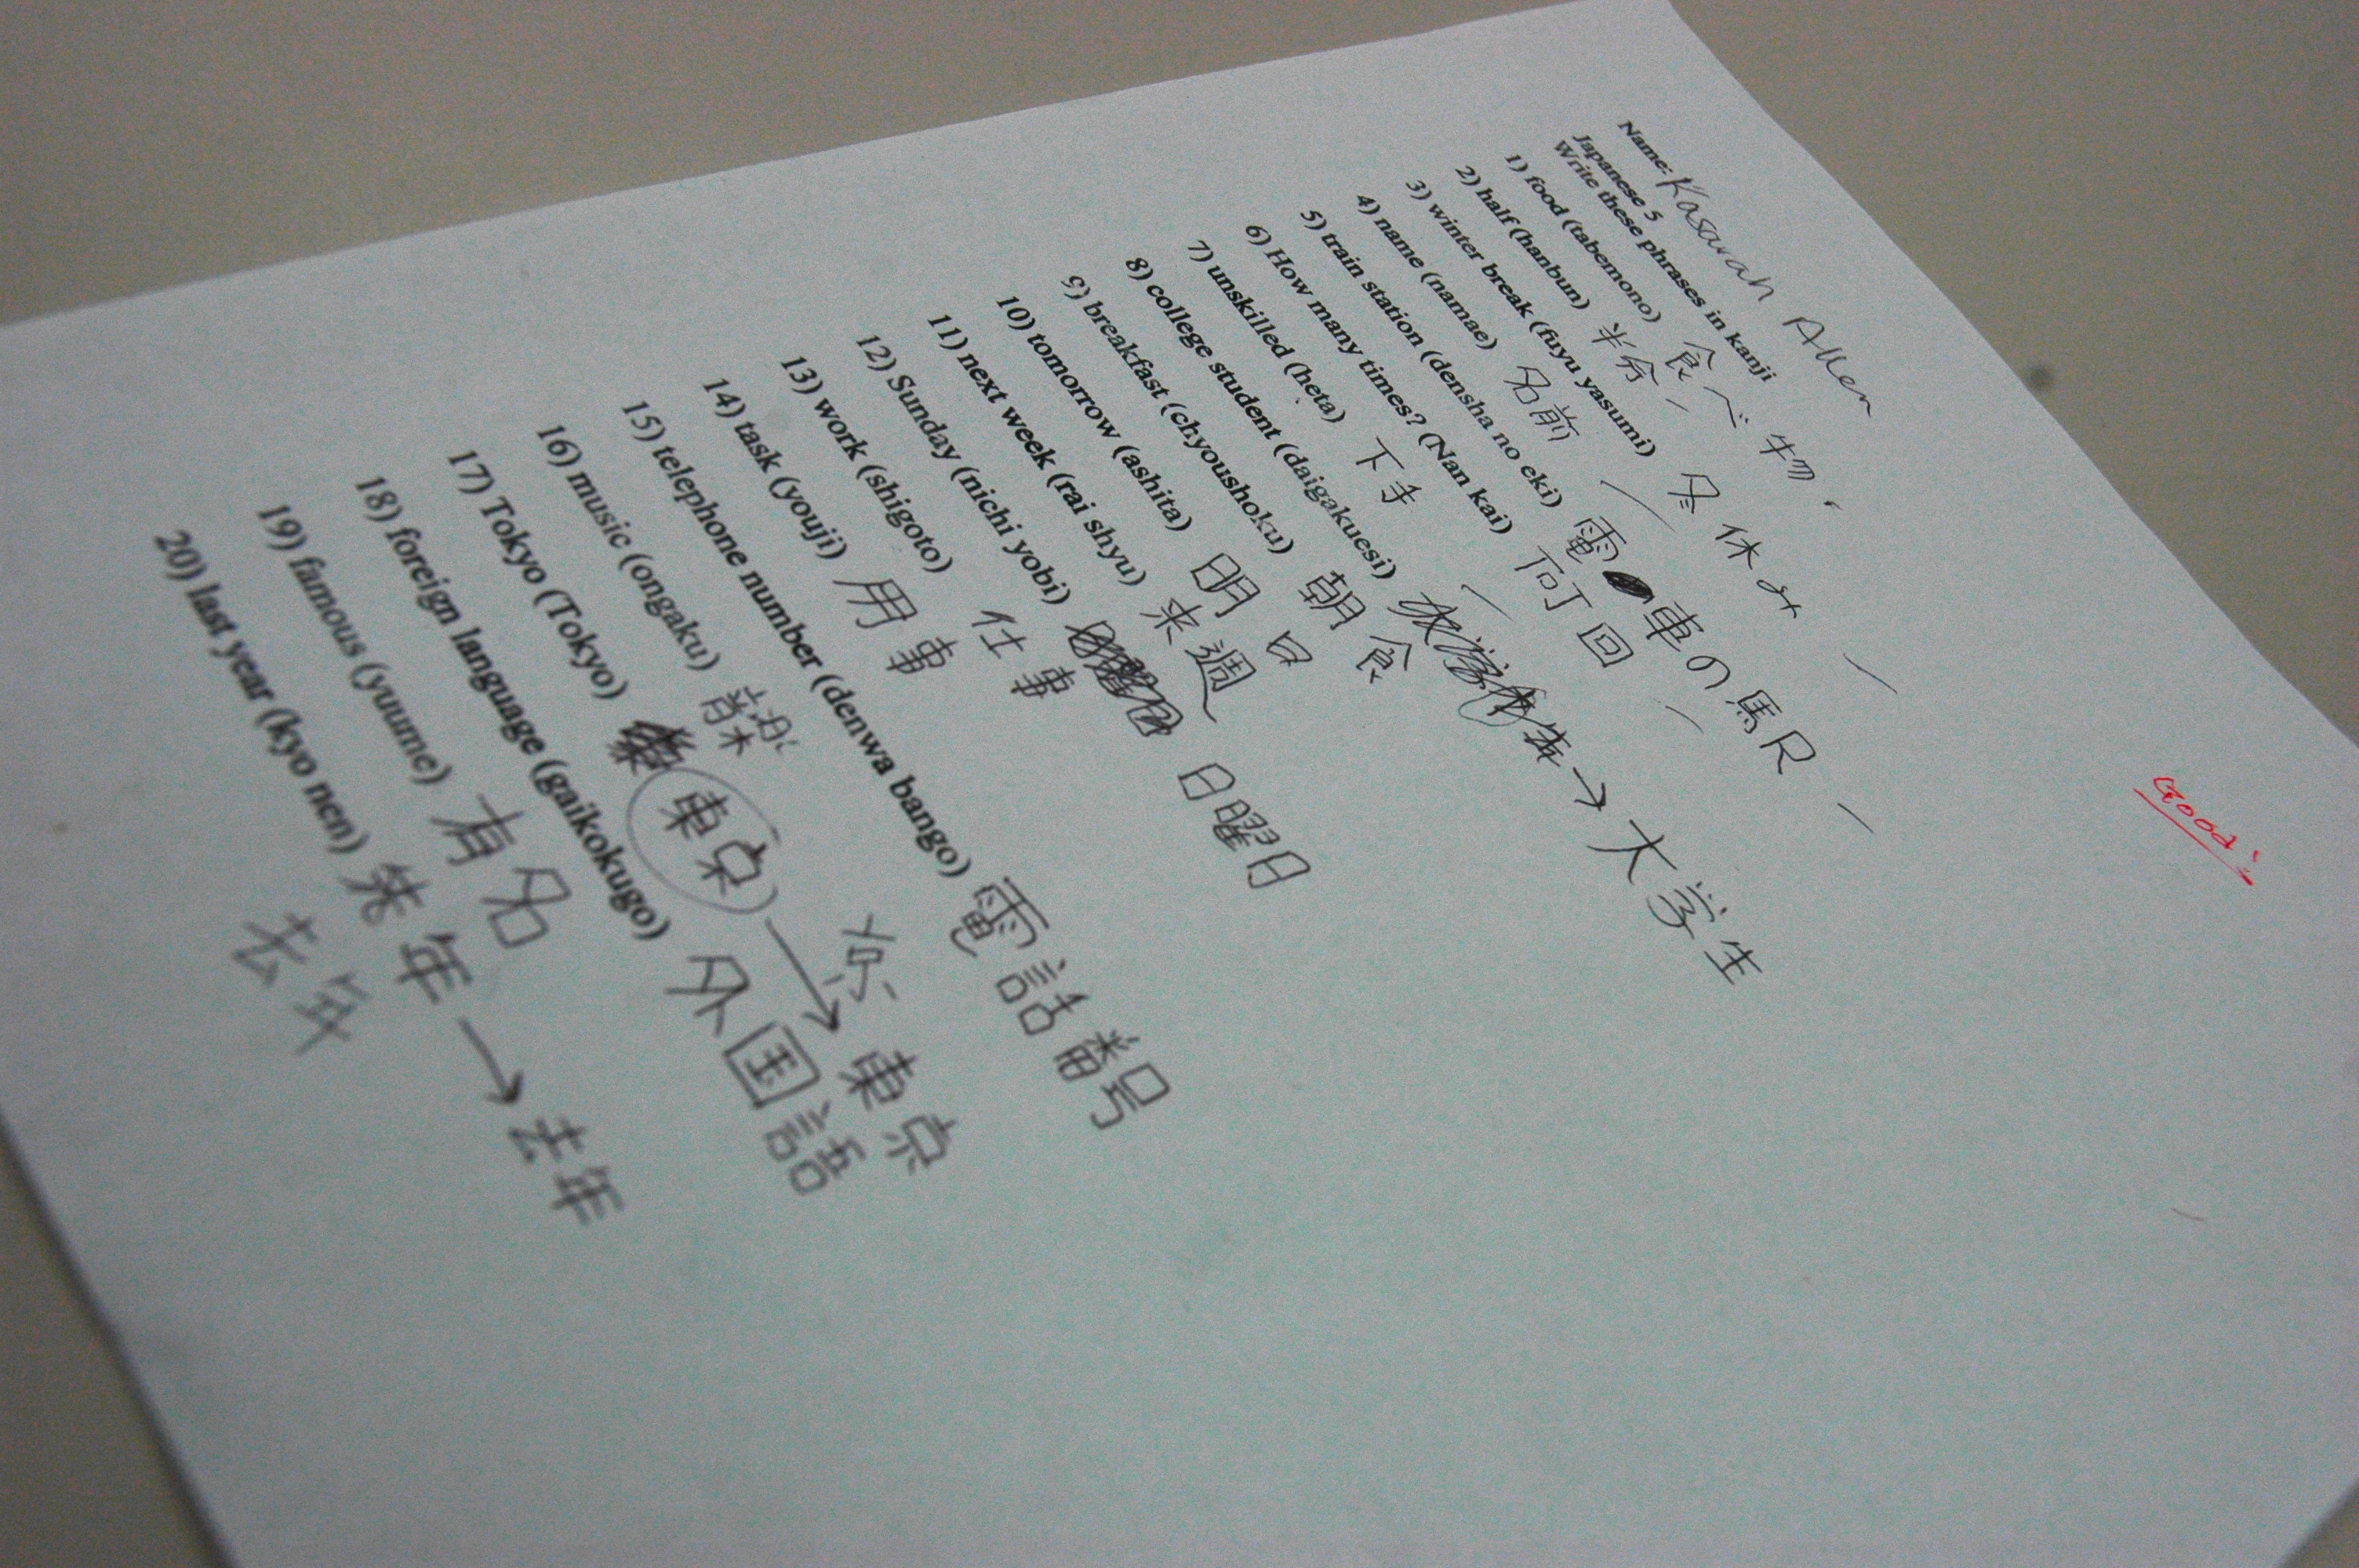 Name: Kasarah Allen
Japanese 5
Write these phrases in kanji
1) food (tabemono) 食べ物
2) half (hanbun) 半分
3) winter break (fuyu yasumi) 冬休み
4) name (namae) 名前
5) train station (densha no eki) 電車の駅
6) How many times? (Nan kai) 何回
7) unskilled (heta) 下手
8) college student (daigakuesi) → 大学生
9) breakfast (chyoushoku) 朝食
10) tomorrow (ashita) 明日
11) next week (rai shyu) 来週
12) Sunday (nichi yobi) 日曜日
13) work (shigoto) 仕事
14) task (youji) 用事
15) telephone number (denwa bango) 電話番号
16) music (ongaku)
17) Tokyo (Tokyo) 東京 → 東京
京
18) foreign language (gaikokugo) 外国語
19) famous (yuume) 有名
20) last year (kyo nen) 年 → 去年
去年
Good!